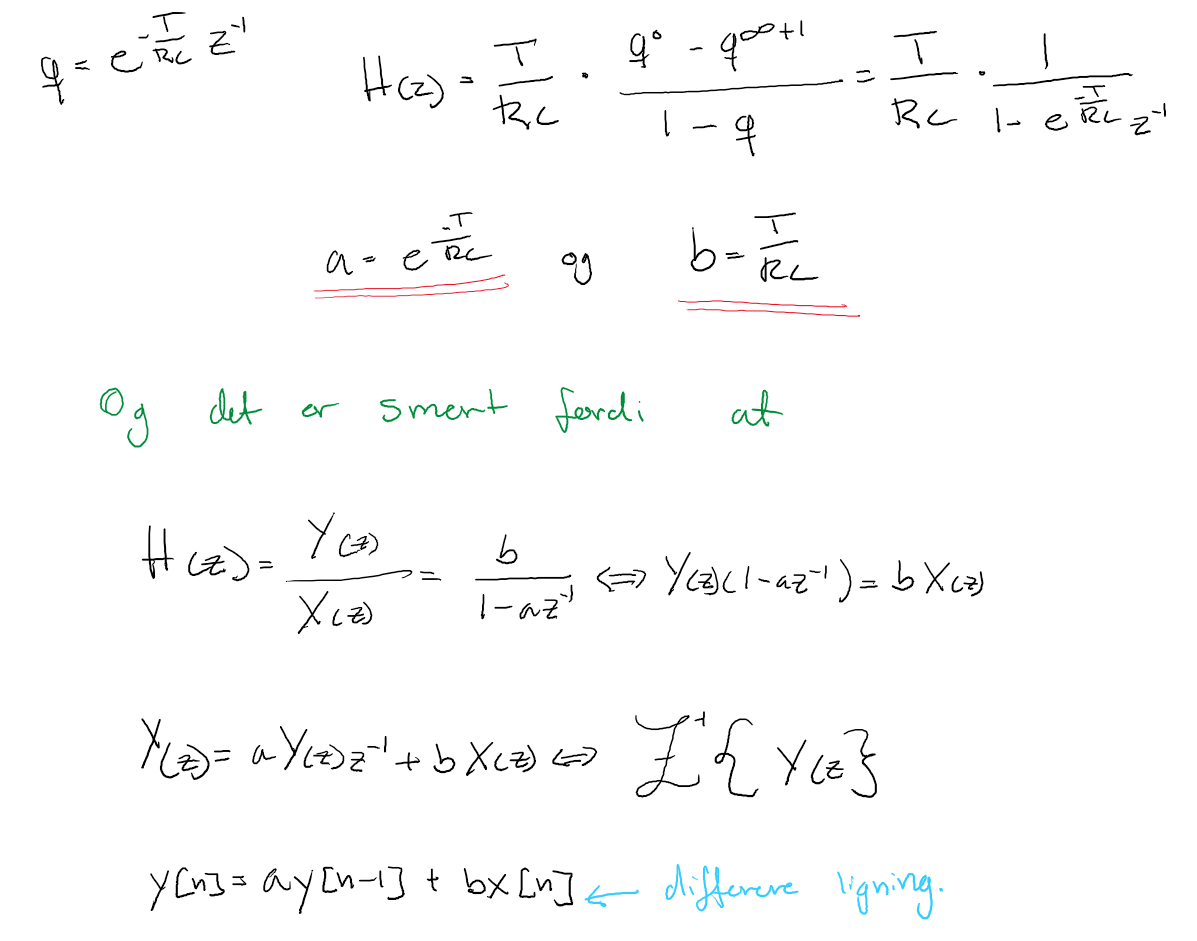 q = e^{-T/RC} z^{-1}   H(z) = T/RC · (q^0 - q^{∞+1})/(1 - q) = T/RC · 1/(1 - e^{-T/RC} z^{-1})
a = e^{-T/RC} og b = T/RC
Og det er smart fordi at
H(z) = Y(z)/X(z) = b/(1-az^{-1}) ⇔ Y(z)(1-az^{-1}) = bX(z)
Y(z) = aY(z)z^{-1} + bX(z) ⇔ Z^{-1}{Y(z}
y[n] = ay[n-1] + bx[n] ← differere ligning.